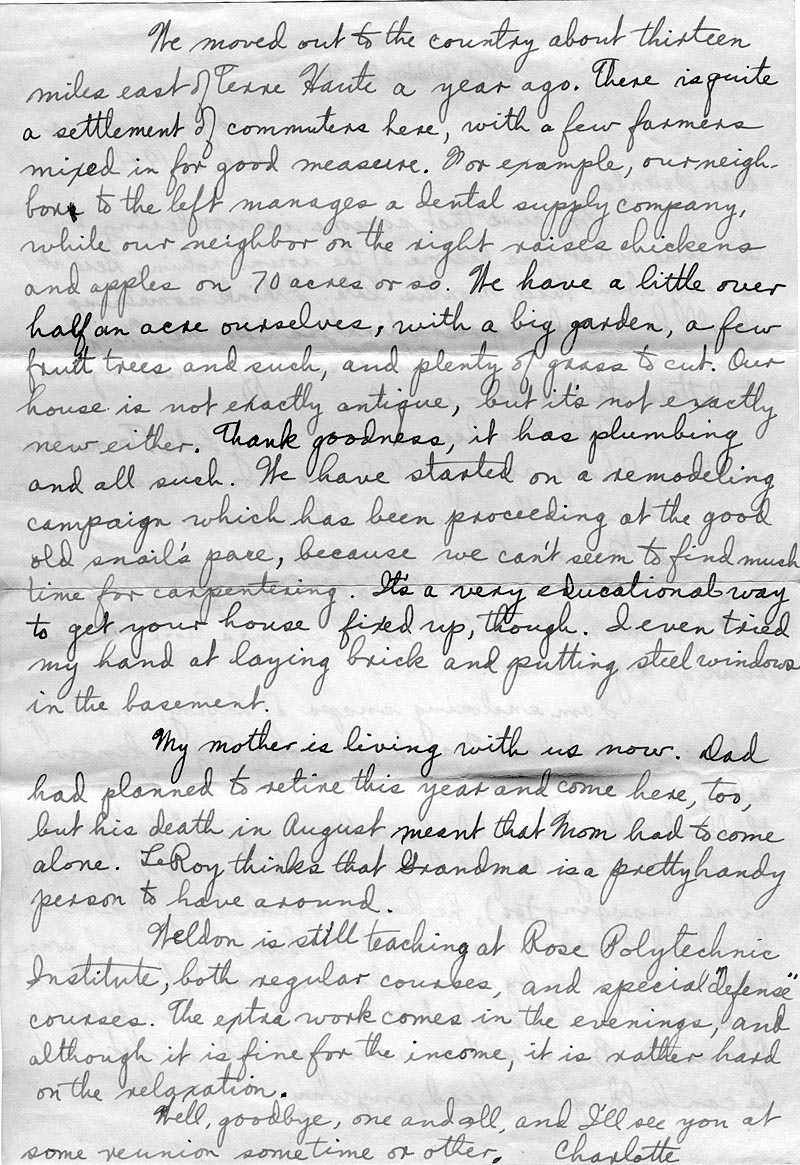 We moved out to the country about thirteen
miles east of Terre Haute a year ago. There is quite
a settlement of commuters here, with a few farmers
mixed in for good measure. For example, our neigh-
bor to the left manages a dental supply company,
while our neighbor on the right raises chickens
and apples on 70 acres or so. We have a little over
half an acre ourselves, with a big garden, a few
fruit trees and such, and plenty of grass to cut. Our
house is not exactly antique, but it's not exactly
new either. Thank goodness, it has plumbing
and all such. We have started on a remodeling
campaign which has been proceeding at the good
old snail's pace, because we can't seem to find much
time for carpentering. It's a very educational way
to get your house fixed up, though. I even tried
my hand at laying brick and putting steel windows
in the basement.
My mother is living with us now. Dad
had planned to retire this year and come here, too,
but his death in August meant that Mom had to come
alone. LeRoy thinks that Grandma is a pretty handy
person to have around.
Weldon is still teaching at Rose Polytechnic
Institute, both regular courses, and special "defense"
courses. The extra work comes in the evenings, and
although it is fine for the income, it is rather hard
on the relaxation.
Well, goodbye, one and all, and I'll see you at
some reunion sometime or other. Charlotte